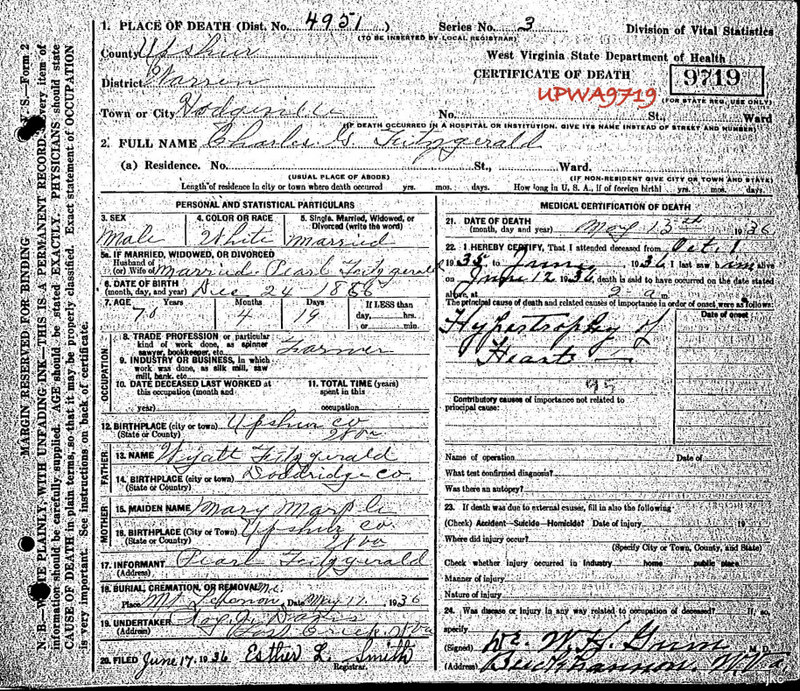 1. PLACE OF DEATH (Dist. No. 4951 ) Series No. 3 Division of Vital Statistics
(TO BE INSERTED BY LOCAL REGISTRAR)
County Upshur West Virginia State Department of Health
District Warren CERTIFICATE OF DEATH 9719
UPWA9719 (FOR STATE REG. USE ONLY)
Town or City No. St., Ward
(IF DEATH OCCURRED IN A HOSPITAL OR INSTITUTION, GIVE ITS NAME INSTEAD OF STREET AND NUMBER)
2. FULL NAME Charles G. Fitzgerald
(a) Residence. No. St., Ward.
(USUAL PLACE OF ABODE) (IF NON-RESIDENT GIVE CITY OR TOWN AND STATE)
Length of residence in city or town where death occurred yrs. mos. days. How long in U. S. A., if of foreign birth yrs. mos. days.
PERSONAL AND STATISTICAL PARTICULARS
3. SEX 4. COLOR OR RACE 5. Single, Married, Widowed, or
Divorced (write the word)
Male White Married
5a. IF MARRIED, WIDOWED, OR DIVORCED
Husband of
(or) Wife of Married Pearl Fitzgerald
6. DATE OF BIRTH
(month, day, and year) Dec 24
7. AGE Years Months Days If LESS than
4 19 day, hrs.
or min.
OCCUPATION
8. TRADE PROFESSION or particular
kind of work done, as spinner
sawyer, bookkeeper, etc. Farmer
9. INDUSTRY OR BUSINESS, in which
work was done, as silk mill, saw
mill, bank, etc.
10. DATE DECEASED LAST WORKED at 11. TOTAL TIME (years)
this occupation (month and spent in this
year) occupation
12. BIRTHPLACE (city or town) Upshur co
(State or County) W Va
FATHER
13. NAME Wyatt Fitzgerald
14. BIRTHPLACE (city or town) Doddridge co.
(State or Country)
MOTHER
15. MAIDEN NAME Mary Marple
16. BIRTHPLACE (City or Town) Upshur co.
(State or Country) W Va
17. INFORMANT Pearl Fitzgerald
(Address)
18. BURIAL, CREMATION, OR REMOVAL
Place Mt Lebanon, Date May 17, 1936
19. UNDERTAKER Davis
(Address) Lost Creek W Va
20. FILED June 17, 1936 Esther L. Smith
Registrar.
MEDICAL CERTIFICATION OF DEATH
21. DATE OF DEATH
(month, day, and year) May 13th 1936
22. I HEREBY CERTIFY, That I attended deceased from Oct. 1
1935 to 1936 I last saw him
on 12 1936, death is said to have occurred on the date stated
above, at 2 am
The principal cause of death and related causes of importance in order of onset were as follows:
Date of onset
Hypertrophy of
Heart
95
Contributory causes of importance not related to
principal cause:
Name of operation Date of
What test confirmed diagnosis?
Was there an autopsy?
23. If death was due to external causes, fill in also the following:
(Check) Accident—Suicide—Homicide? Date of injury 19
Where did injury occur?
(Specify City or Town, County, and State)
Check whether injury occurred in Industry home public place
Manner of injury
Nature of injury
24. Was disease or injury in any way related to occupation of deceased? If so,
specify
(Signed) Dr. W. H. Gunn M. D.
(Address) Buckhannon, W Va
V. S.—Form 2
MARGIN RESERVED FOR BINDING
N. B.—WRITE PLAINLY, WITH UNFADING INK—THIS IS A PERMANENT RECORD. Every item of
information should be carefully supplied. AGE should be stated EXACTLY. PHYSICIANS should state
CAUSE OF DEATH in plain terms, so that it may be properly classified. Exact statement of OCCUPATION
is very important. See instructions on back of certificate.
jkc